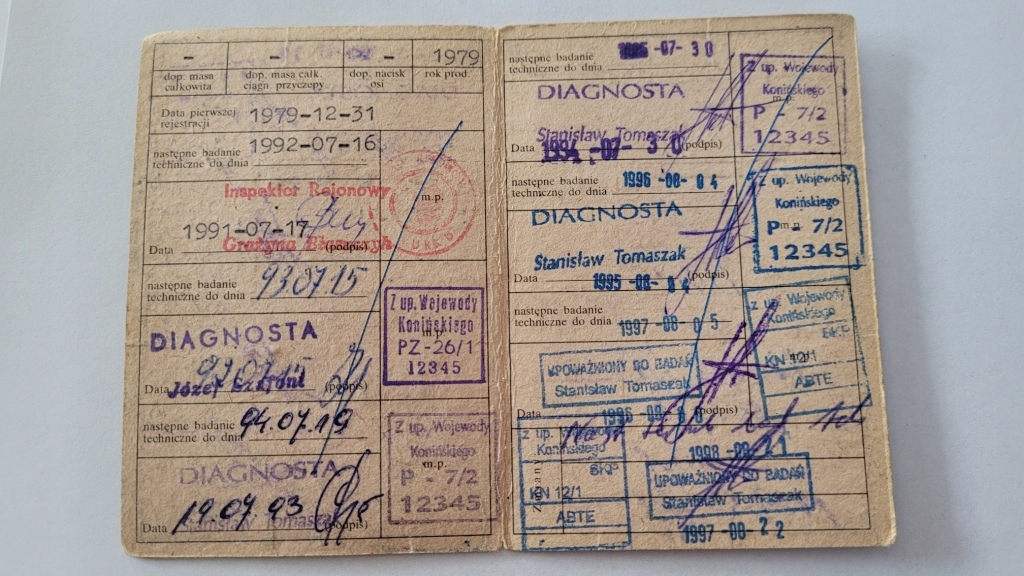 - - - 1979
dop. masa całkowita dop. masa całk. ciągn. przyczepy dop. nacisk osi rok prod.
Data pierwszej rejestracji 1979-12-31
następne badanie techniczne do dnia 1992-07-16
Inspektor Rejonowy
m.p.
1991-07-17
Grażyna
Data (podpis)
następne badanie techniczne do dnia 93.07.15
Z up. Wojewody
Konińskiego
m.p.
PZ-26/1
12345
DIAGNOSTA
Józef
Data (podpis)
następne badanie techniczne do dnia 94.07.19
Z up. Wojewody
Konińskiego
m.p.
P - 7/2
12345
DIAGNOSTA
Stanisław Tomaszak
Data 19.07.93 (podpis)
następne badanie techniczne do dnia 1995-07-30
Z up. Wojewody
Konińskiego
m.p.
P - 7/2
12345
DIAGNOSTA
Stanisław Tomaszak
Data 1994-07-30 (podpis)
następne badanie techniczne do dnia 1996-08-04
Z up. Wojewody
Konińskiego
m.p.
P - 7/2
12345
DIAGNOSTA
Stanisław Tomaszak
Data 1995-08-04 (podpis)
następne badanie techniczne do dnia 1997-08-05
Z up. Wojewody
Konińskiego
BKP
KN 12/1
ABTE
UPOWAŻNIONY DO BADAŃ
Stanisław Tomaszak
Data (podpis)
Z up. Wojewody
Konińskiego
BKP
KN 12/1
ABTE
1998-08-21
UPOWAŻNIONY DO BADAŃ
Stanisław Tomaszak
1997-08-22